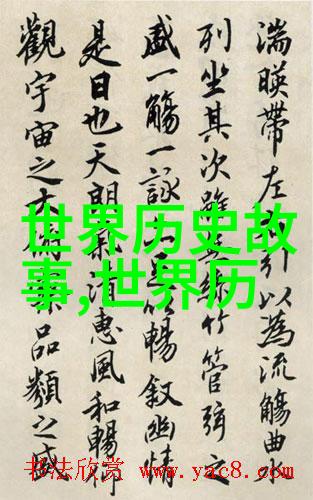 湍暎帶左引以為流觴曲
列坐其次雖絲竹管弦之
盛一觴一詠以暢敘幽情
是日也天朗惠風和暢
觀宇宙之品類之盛
世界历史故
事,世界历
书法欣赏 www.yac8.com